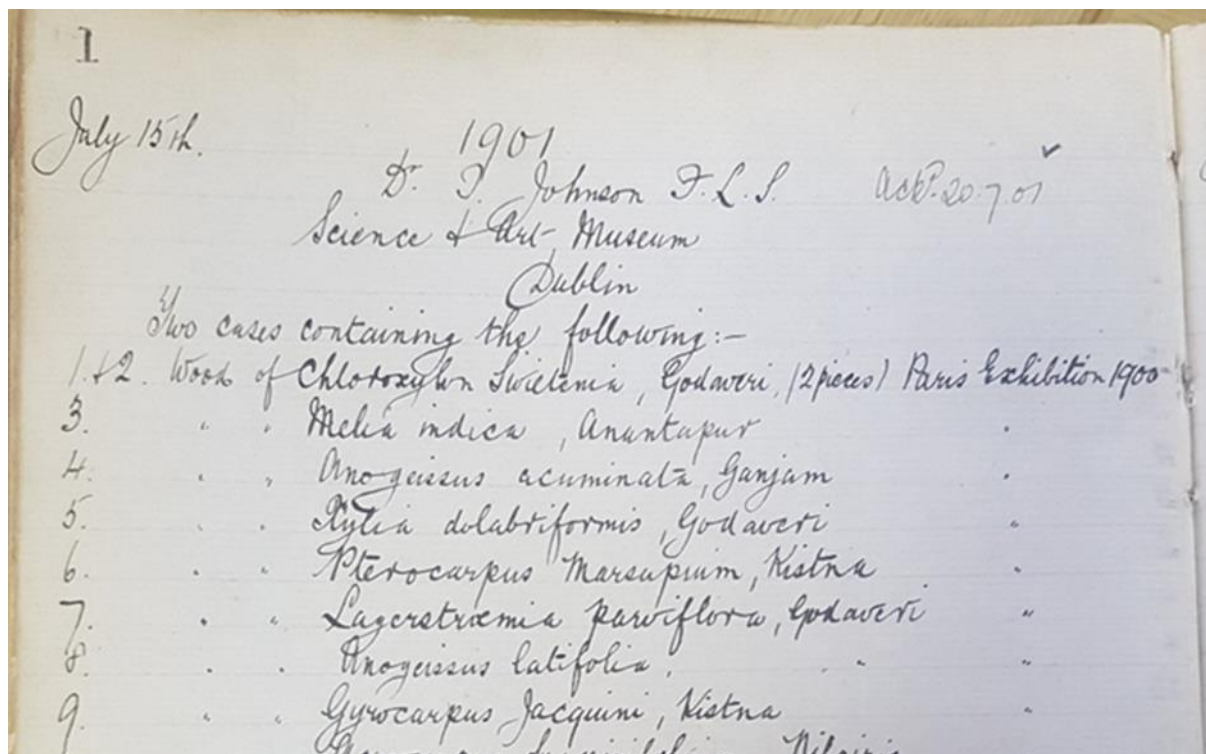 1
July 15th.
1901
Dr. T. Johnson F.L.S. Ackd. 20.7.01 ✓
Science & Art Museum
Dublin
Two cases containing the following:—
1.&2. Wood of Chloroxylon Swietenia, Godaveri, (2 pieces) Paris Exhibition 1900
3. " " Melia indica, Anantapur "
4. " " Anogeissus acuminata, Ganjam "
5. " " Xylia dolabriformis, Godaveri "
6. " " Pterocarpus Marsupium, Kistna "
7. " " Lagerstrœmia parviflora, Godaveri "
8. " " Anogeissus latifolia, " "
9. " " Gyrocarpus Jacquini, Kistna "